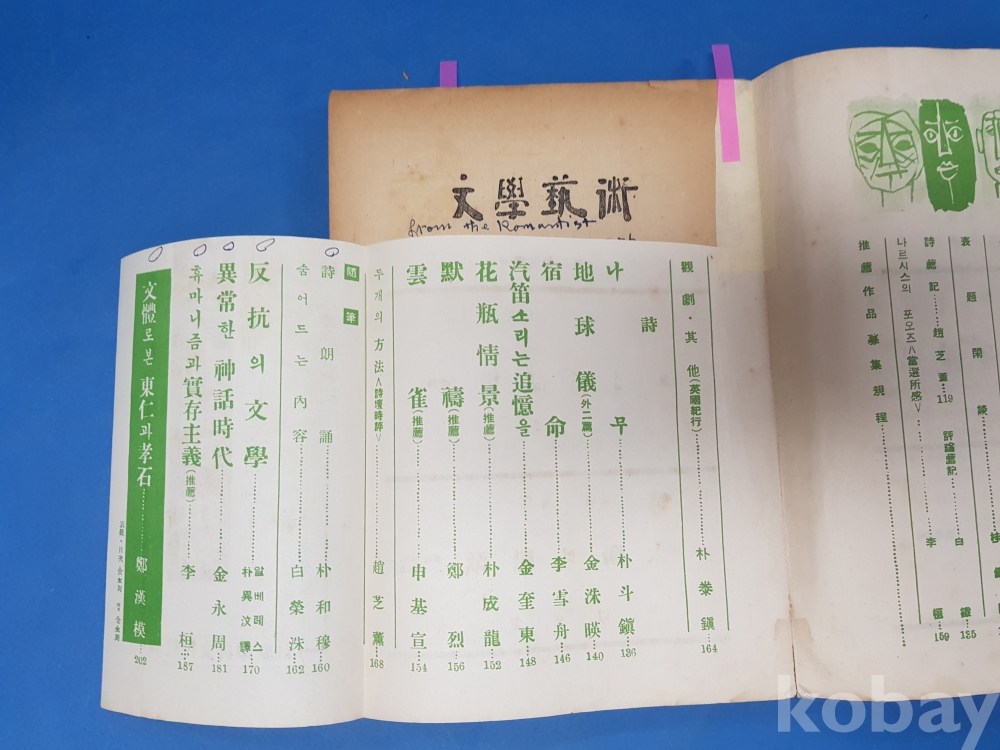 文學藝術
from the Romantist
表題閑談
詩薦記……趙芝薰…119
評論薦記……李
白鐵…135
나르시스의 포오즈<當選所感>
李桓…159
推薦作品募集規程
觀劇·其他(英國紀行)……朴泰鎭…164
詩
나무……朴斗鎭…136
地球儀(外二篇)……金洙暎…140
宿命……李雪舟…146
汽笛소리는追憶을……金奎東…148
花瓶情景(推薦)……朴成龍…152
默禱(推薦)……鄭烈…156
雲雀(推薦)……申基宣…154
두개의 方法<詩壇時評>……趙芝薰…168
隨筆
詩朗誦……朴和穆…160
숨어드는內容……白榮洙…162
反抗의文學……알베레스 朴異汶譯…170
異常한神話時代……金永周…181
휴마니즘과實存主義(推薦)……李桓…187
文體로본 東仁과孝石……鄭漢模…202
kobay